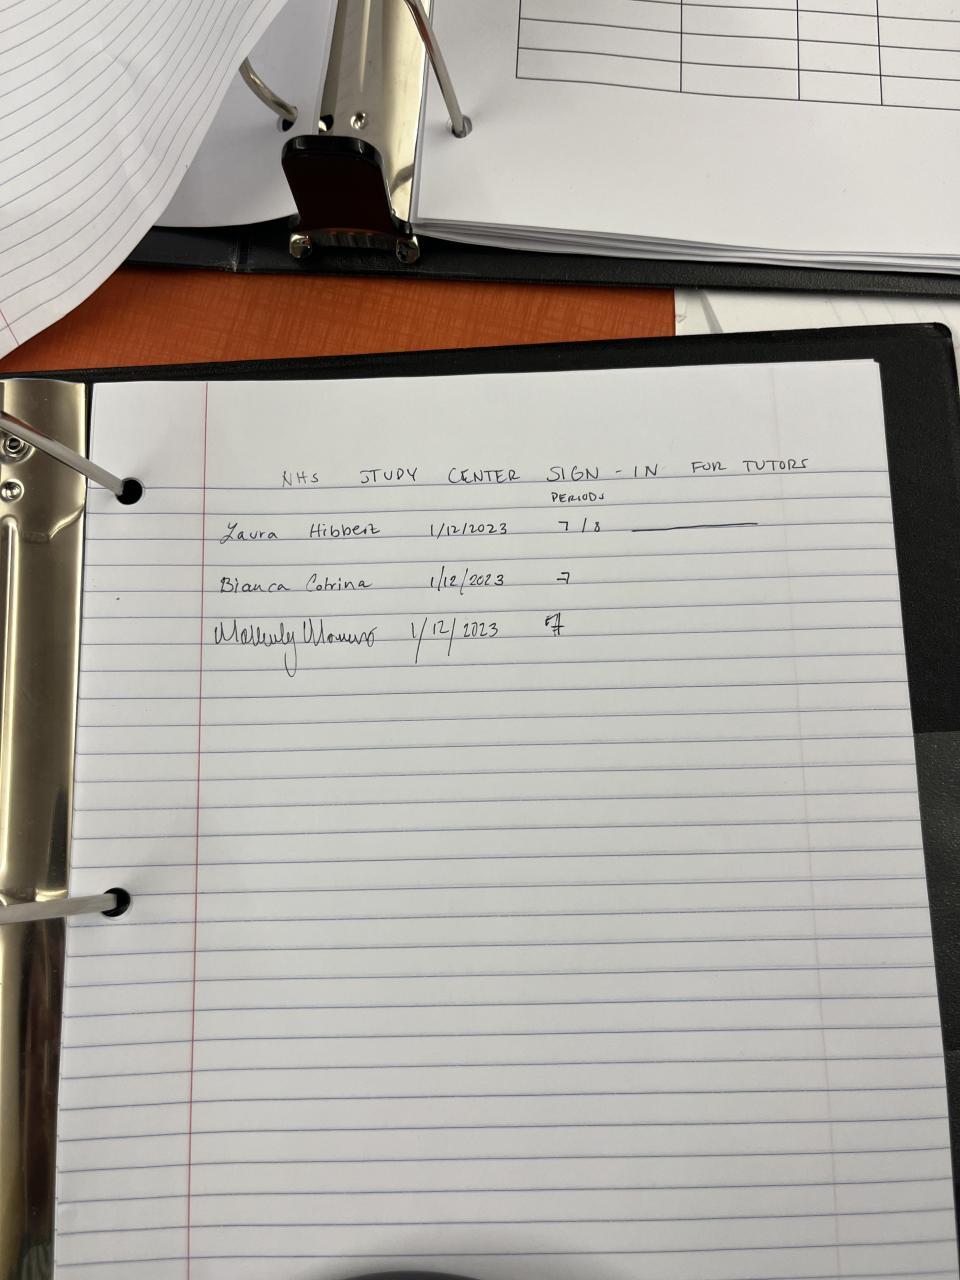 NHS STUDY CENTER SIGN-IN FOR TUTORS
PERIODS
Laura Hibbert 1/12/2023 7/8
Bianca Cotrina 1/12/2023 7
1/12/2023 7